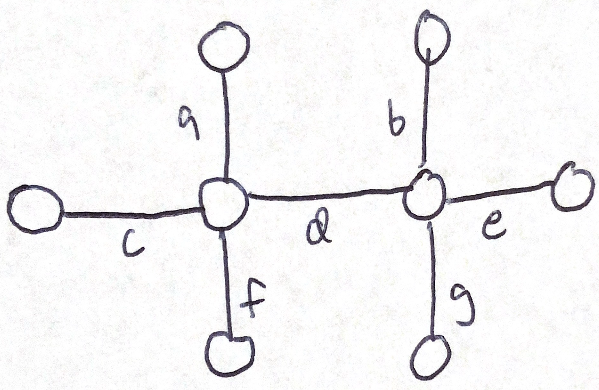 a b
c d e
f g